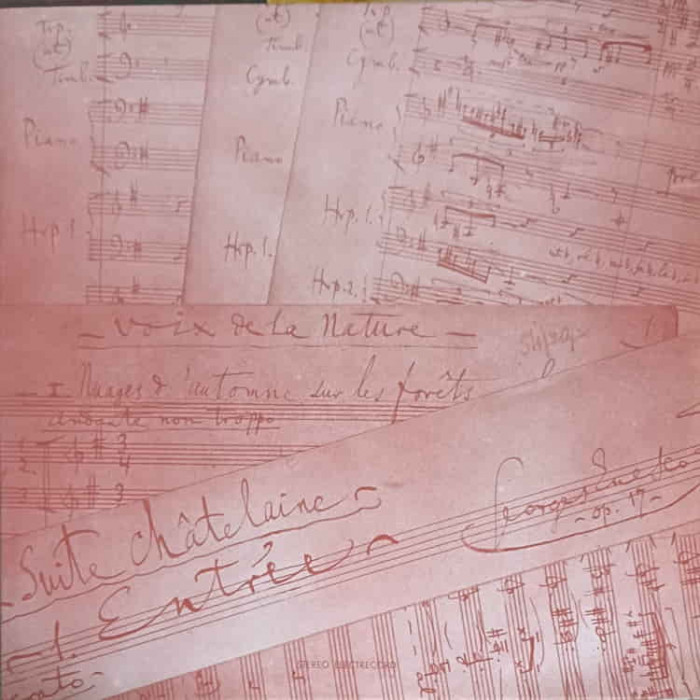 Trp.
(ut)
Timb.
Piano
Hrp. 1
(ut)
Timb.
Cymb.
Piano
Hrp. 1.
Trp.
(ut)
Cymb.
Piano
Hrp. 1.
Hrp. 2.
— Voix de la Nature —
— I Nuages d'automne sur les forêts
andante non troppo
3
4
3
Suite châtelaine
- op. 17 -
1. Entrée
STEREO ELECTRECORD